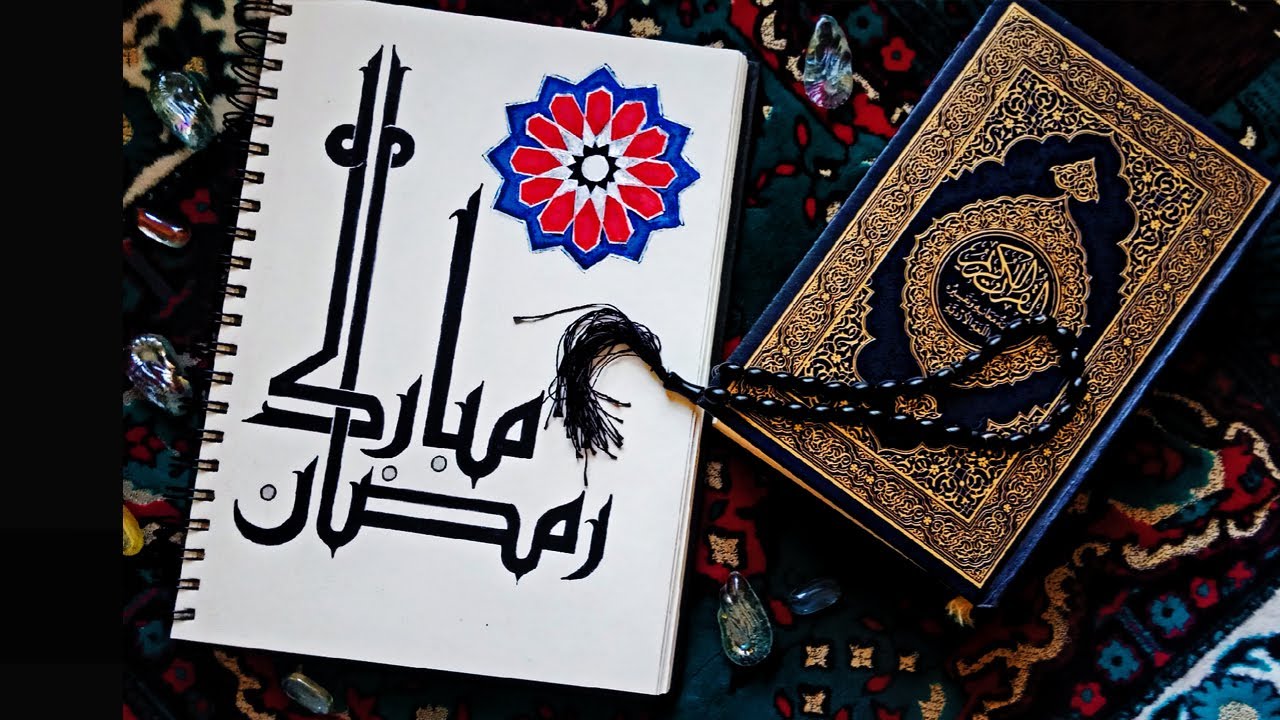 رمضان
مبارك
القرآن الكريم